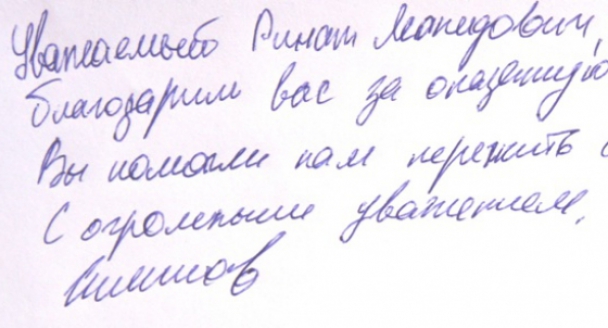 Уважаемый Ринат Мамедович,
благодарим вас за оказанную
Вы помогли нам пережить
С огромным уважением,